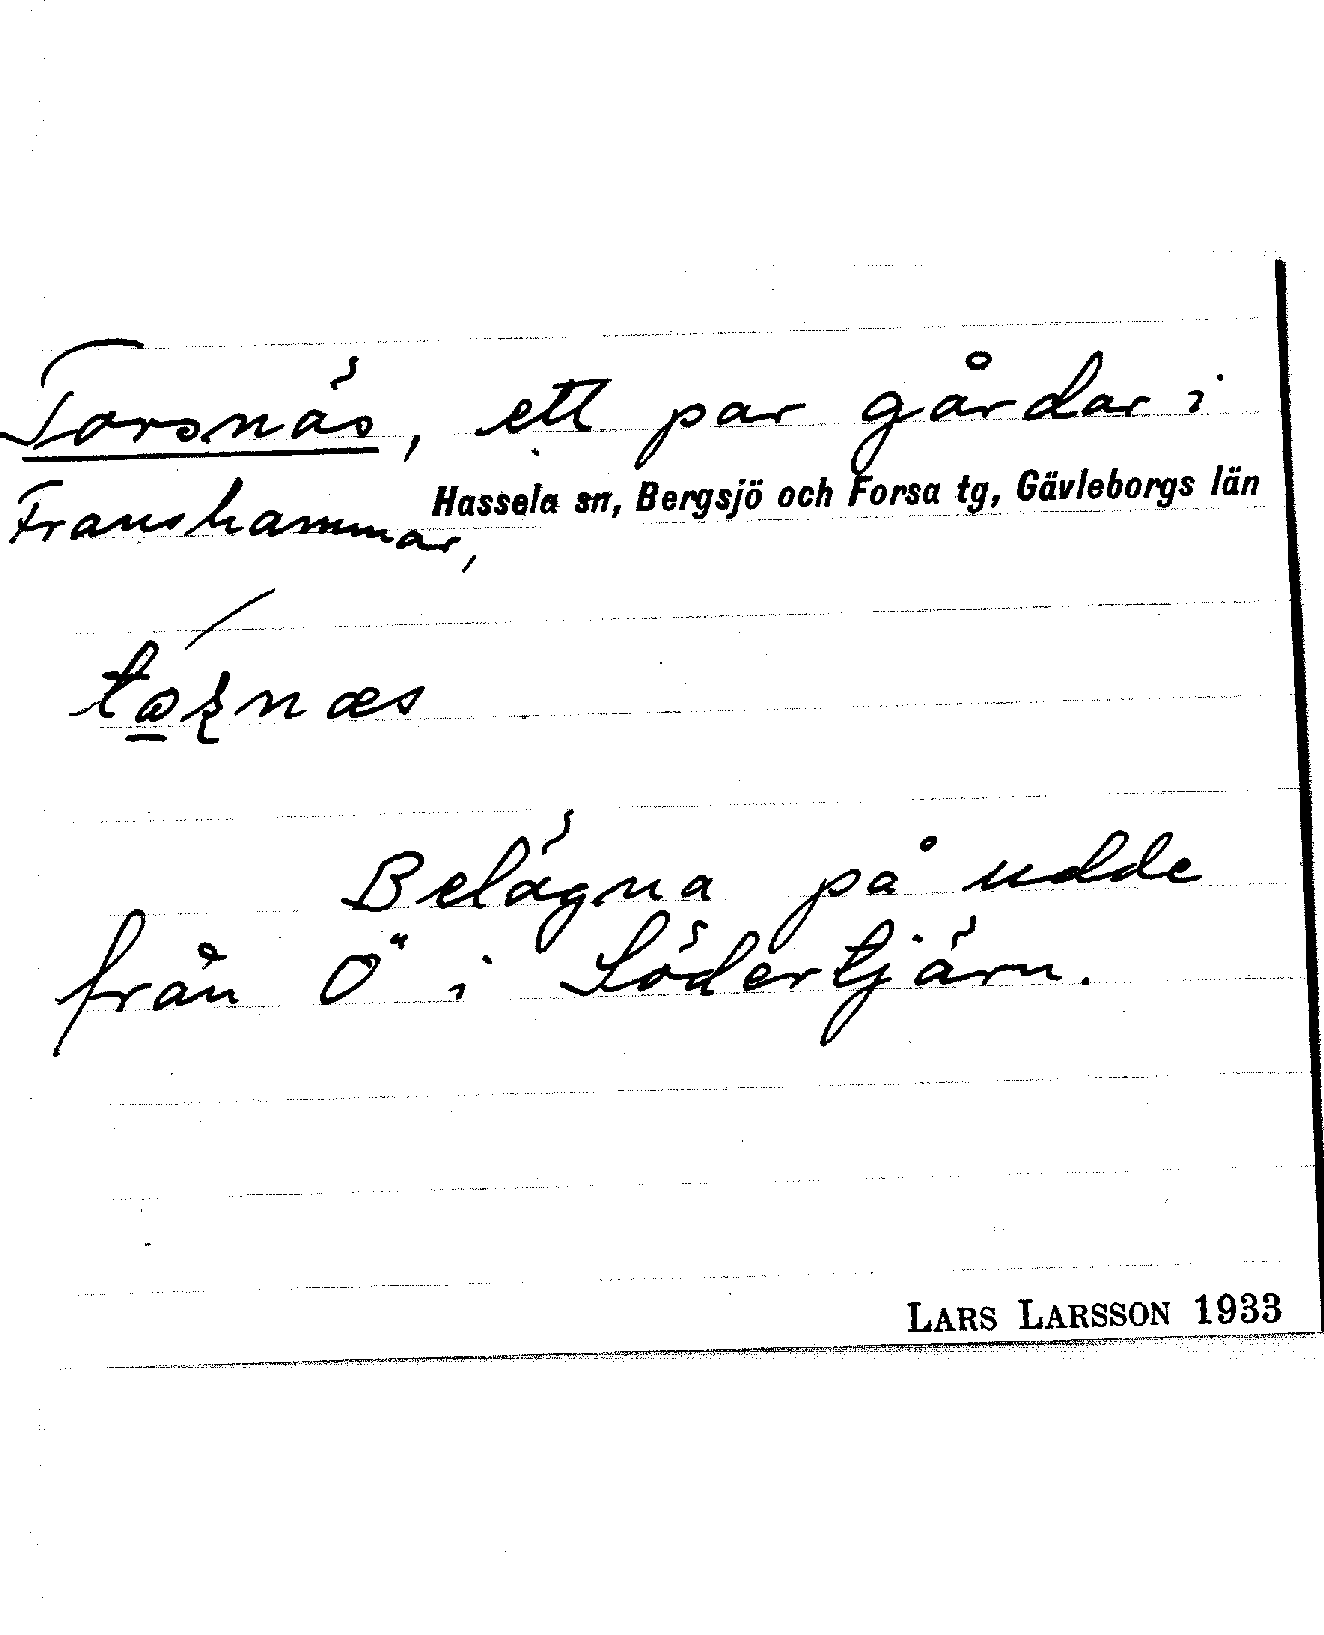 Torsnäs, ett par gårdar i
Franshammar, Hassela sn, Bergsjö och Forsa tg, Gävleborgs län
Belägna på udde
från Ö i Södertjärn.
LARS LARSSON 1933